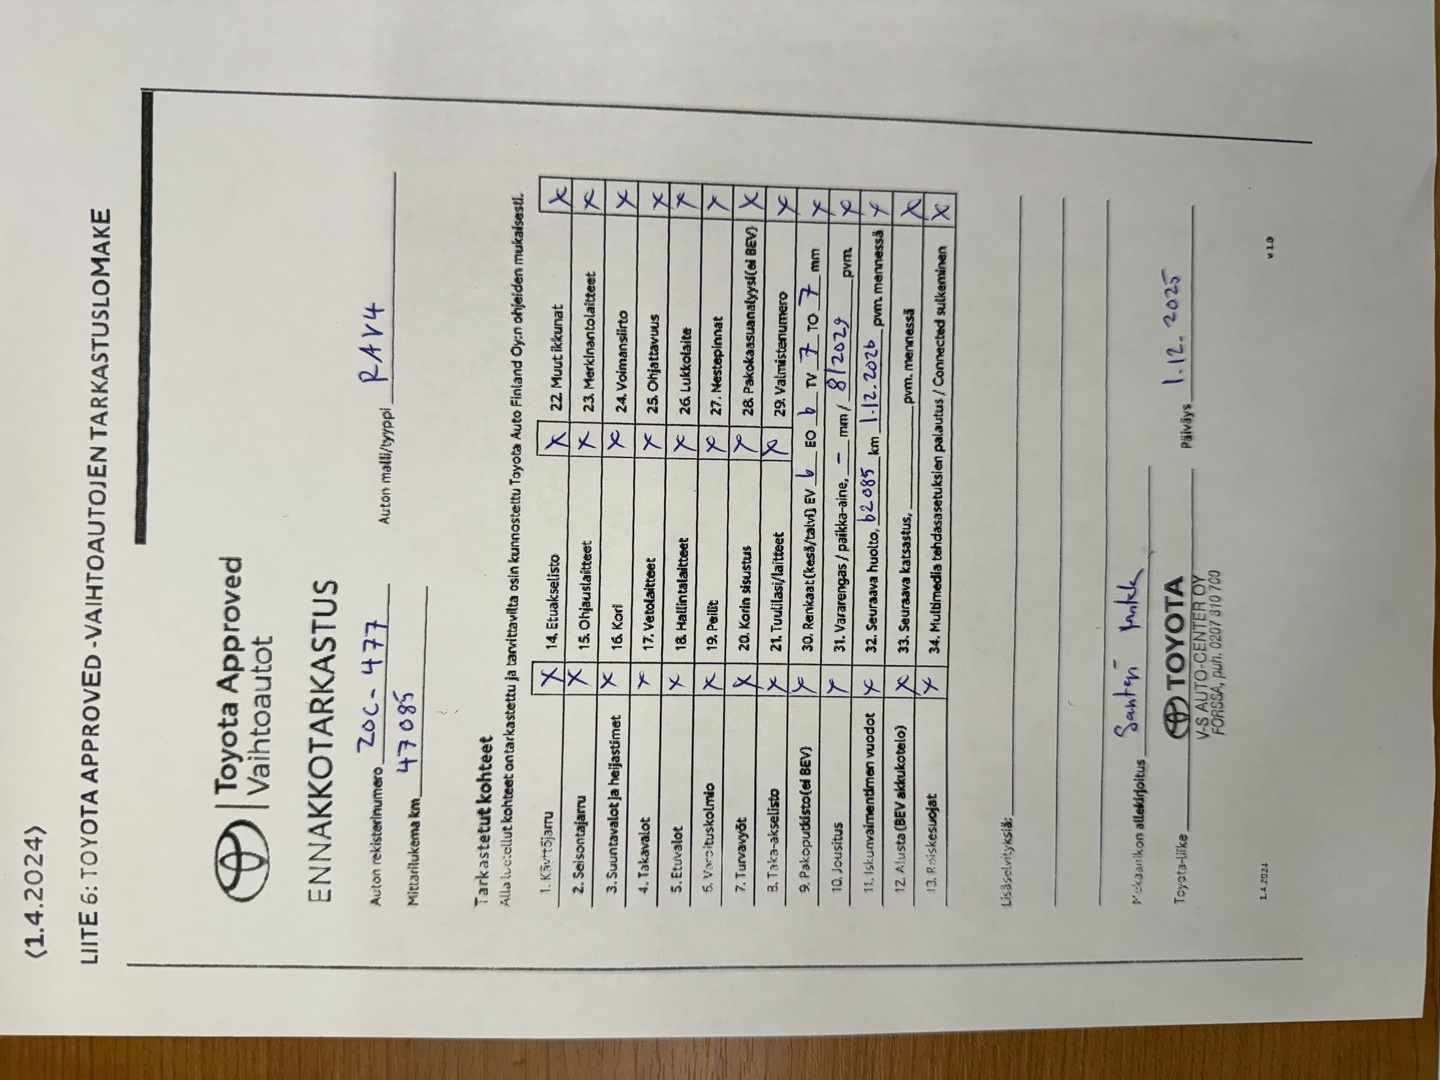 (1.4.2024)
LIITE 6: TOYOTA APPROVED -VAIHTOAUTOJEN TARKASTUSLOMAKE
Toyota Approved
Vaihtoautot
ENNAKKOTARKASTUS
Auton rekisterinumero ZOC-477 Auton malli/tyyppi RAV4
Mittarilukema km 47085
Tarkastetut kohteet
Alla luetellut kohteet on tarkastettu ja tarvittavilta osin kunnostettu Toyota Auto Finland Oy:n ohjeiden mukaisesti.
1. Käyttöjarru x 14. Etuakselisto x 22. Muut ikkunat x
2. Seisontajarru x 15. Ohjauslaitteet x 23. Merkinantolaitteet x
3. Suuntavalot ja heijastimet x 16. Kori x 24. Voimansiirto x
4. Takavalot x 17. Vetolaitteet x 25. Ohjattavuus x
5. Etuvalot x 18. Hallintalaitteet x 26. Lukkolaite x
6. Varoituskolmio x 19. Peilit x 27. Nestepinnat x
7. Turvavyöt x 20. Korin sisustus x 28. Pakokaasuanalyysi (ei BEV) x
8. Taka-akselisto x 21. Tuulilasi/laitteet x 29. Valmistenumero x
9. Pakoputkisto (ei BEV) x 30. Renkaat (kesä/talvi) EV 6 EO 6 TV 7 TO 7 mm x
10. Jousitus x 31. Vararengas / paikka-aine, - mm / 8/2029 pvm. x
11. Iskunvaimentimen vuodot x 32. Seuraava huolto, 62085 km 1.12.2026 pvm. mennessä x
12. Alusta (BEV akkukotelo) x 33. Seuraava katsastus, pvm. mennessä x
13. Roiskesuojat x 34. Multimedia tehdasasetuksien palautus / Connected sulkeminen x
Lisäselvityksiä:
Mekaanikon allekirjoitus Santeri
Toyota-liike TOYOTA Päiväys 1.12.2025
V-S AUTO-CENTER OY
FORSSA, puh. 0207 810 700
1.4.2024 v 1.0